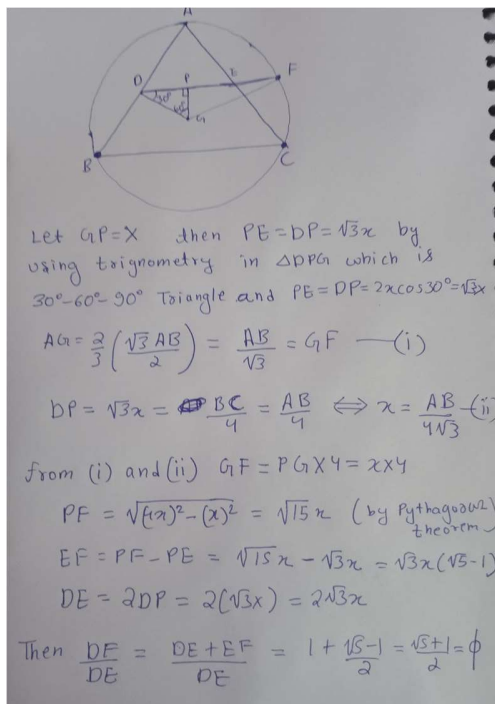 A
D P D F
30°
60°
G
B C
Let GP = X then PE = DP = √3x by
using trignometry in △DPG which is
30°-60°-90° Triangle and PE = DP = 2xcos30° = √3x
AG = 2/3 (√3 AB/2) = AB/√3 = GF —(i)
DP = √3x = BC/4 = AB/4 ⟺ x = AB/4√3 —(ii)
from (i) and (ii) GF = PG×4 = x×4
PF = √((4x)²-(x)²) = √15 x (by Pythagorus
theorem
EF = PF - PE = √15x - √3x = √3x(√5-1)
DE = 2DP = 2(√3x) = 2√3x
Then DF/DE = DE+EF/DE = 1 + √5-1/2 = √5+1/2 = ϕ